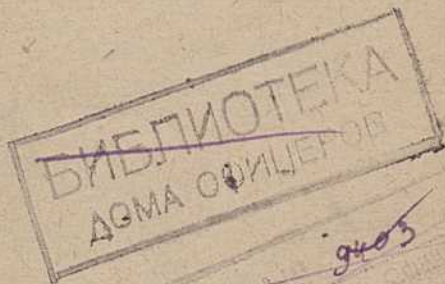 БИБЛИОТЕКА
ДОМА ОФИЦЕРОВ
9403